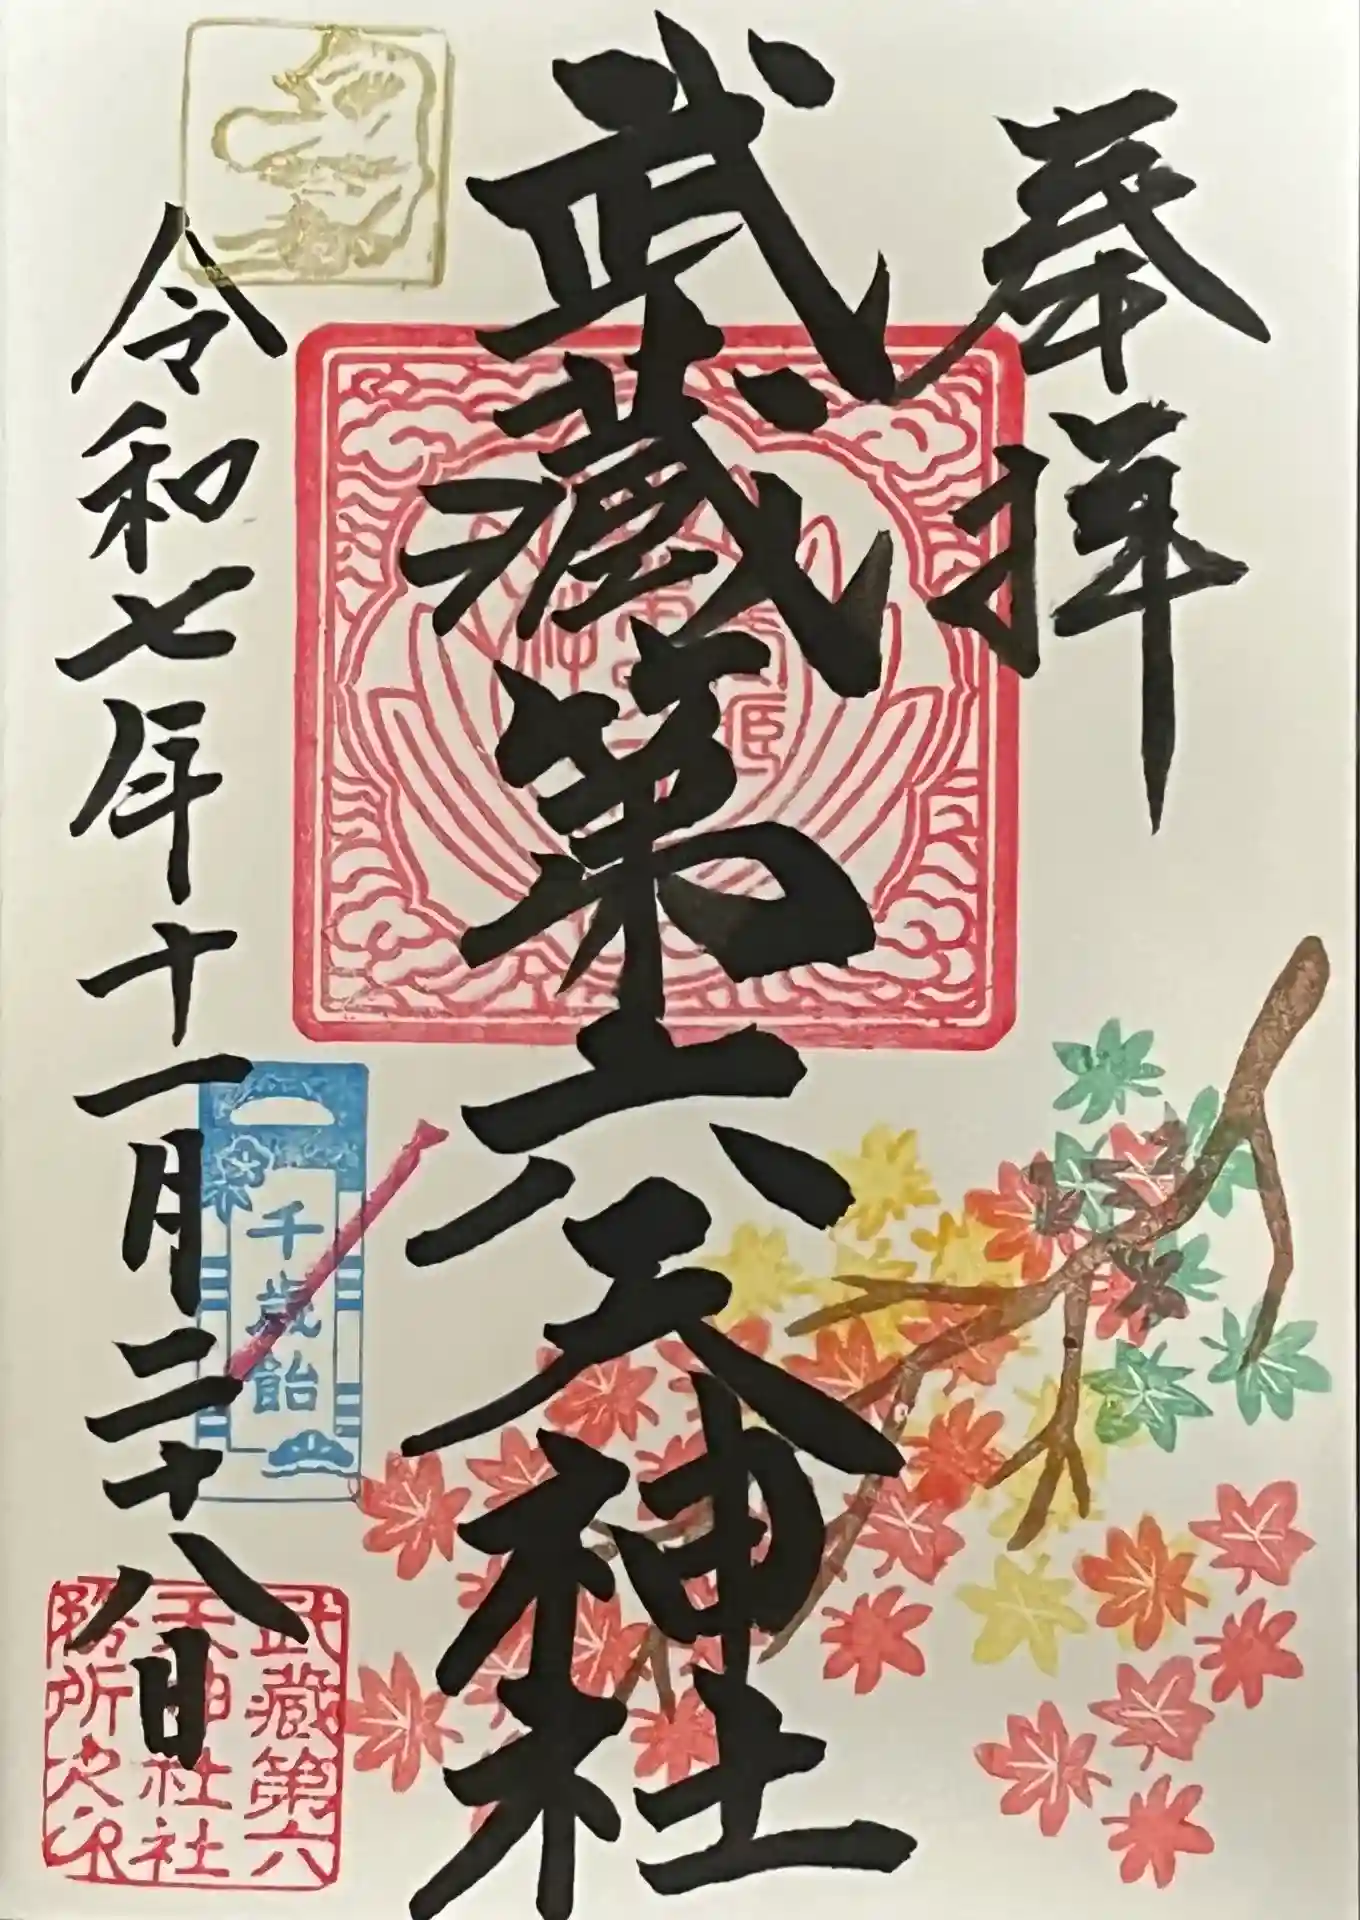 奉拝
武蔵第六天神社
令和七年十一月二十八日
千歳飴
武蔵第六
天神社社
務所之印